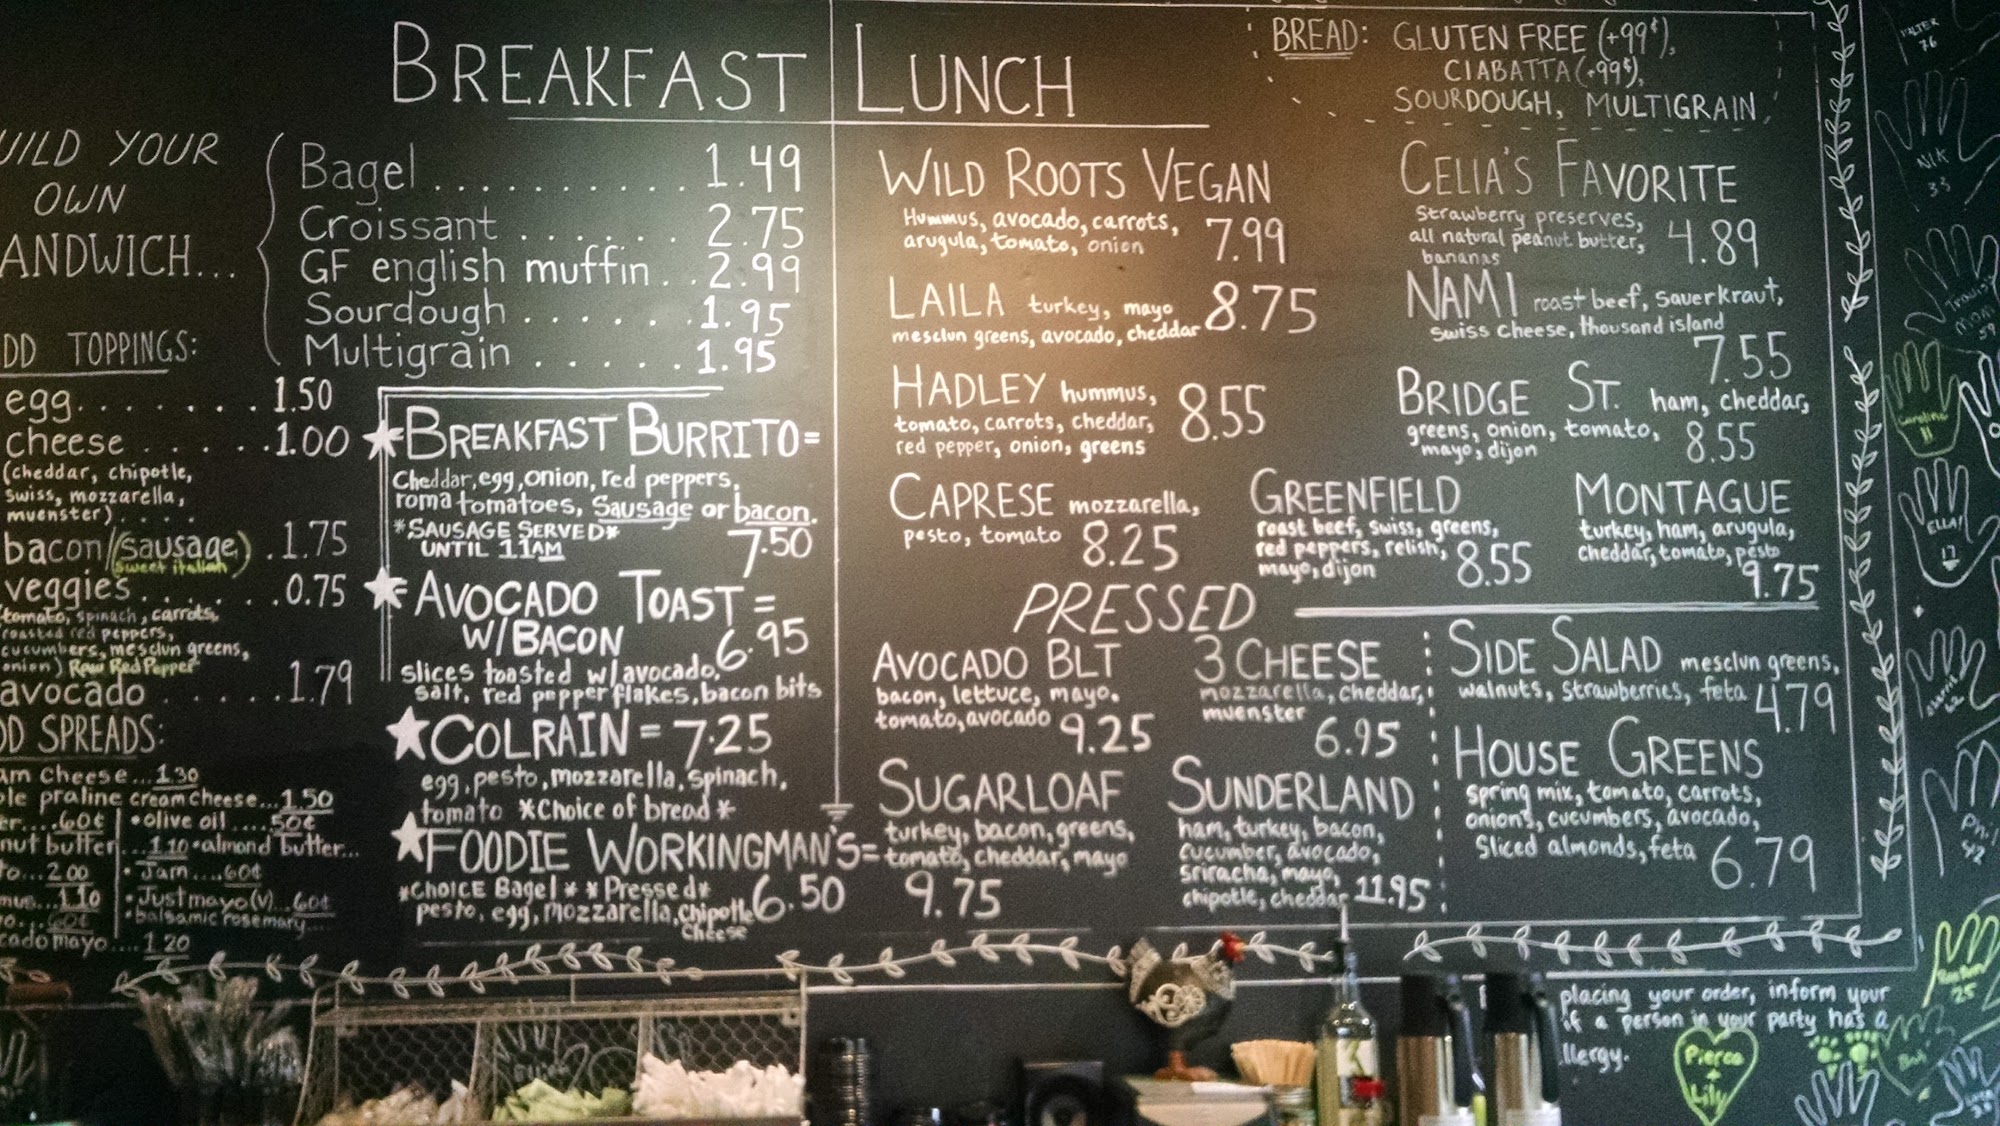 BREAKFAST
UILD YOUR
OWN
ANDWICH...
Bagel.......... 1.49
Croissant ...... 2.75
GF english muffin.. 2.99
Sourdough ...... 1.95
Multigrain ..... 1.95
DD TOPPINGS:
egg....... 1.50
cheese ..... 1.00
(cheddar, chipotle,
swiss, mozzarella,
muenster)....
bacon/(sausage) .1.75
sweet italian
veggies....... 0.75
tomato, spinach, carrots,
roasted red peppers,
cucumbers, mesclun greens,
onion) Raw Red Pepper
avocado ..... 1.79
DD SPREADS:
am cheese...1.30
le praline cream cheese...1.50
er....60¢ •olive oil ....50¢
nut butter...1.10 •almond butter...
to...2.00 •Jam....60¢
mus...1.10 •Just mayo(v)...60¢
o....60¢ •balsamic rosemary...
cado mayo....1.20
BREAKFAST BURRITO=
Cheddar, egg, onion, red peppers,
roma tomatoes, Sausage or bacon.
*SAUSAGE SERVED*
UNTIL 11AM 7.50
AVOCADO TOAST =
W/BACON 6.95
slices toasted w/avocado,
salt, red pepper flakes, bacon bits
COLRAIN = 7.25
egg, pesto, mozzarella, spinach,
tomato *Choice of bread*
FOODIE WORKINGMAN'S=
*CHOICE Bagel* *Pressed* 6.50
pesto, egg, mozzarella, chipotle
cheese
LUNCH
BREAD: GLUTEN FREE (+99¢),
CIABATTA (+99¢),
SOURDOUGH, MULTIGRAIN
WILD ROOTS VEGAN
Hummus, avocado, carrots,
arugula, tomato, onion 7.99
LAILA turkey, mayo
mesclun greens, avocado, cheddar 8.75
HADLEY hummus,
tomato, carrots, cheddar,
red pepper, onion, greens 8.55
CAPRESE mozzarella,
pesto, tomato 8.25
CELIA'S FAVORITE
Strawberry preserves,
all natural peanut butter,
bananas 4.89
NAMI roast beef, sauerkraut,
swiss cheese, thousand island
7.55
BRIDGE ST. ham, cheddar,
greens, onion, tomato,
mayo, dijon 8.55
GREENFIELD
roast beef, swiss, greens,
red peppers, relish,
mayo, dijon 8.55
MONTAGUE
turkey, ham, arugula,
cheddar, tomato, pesto
9.75
PRESSED
AVOCADO BLT
bacon, lettuce, mayo.
tomato, avocado 9.25
3 CHEESE
mozzarella, cheddar,
muenster
6.95
SUGARLOAF
turkey, bacon, greens,
tomato, cheddar, mayo
9.75
SUNDERLAND
ham, turkey, bacon,
cucumber, avocado,
sriracha, mayo,
chipotle, cheddar 11.95
SIDE SALAD mesclun greens,
walnuts, strawberries, feta 4.79
HOUSE GREENS
spring mix, tomato, carrots,
onions, cucumbers, avocado,
sliced almonds, feta 6.79
placing your order, inform your
if a person in your party has a
llergy.
Pierce
+
Lily
NIK
33
Caroline
11
ELLA!
17
Phil
42
25